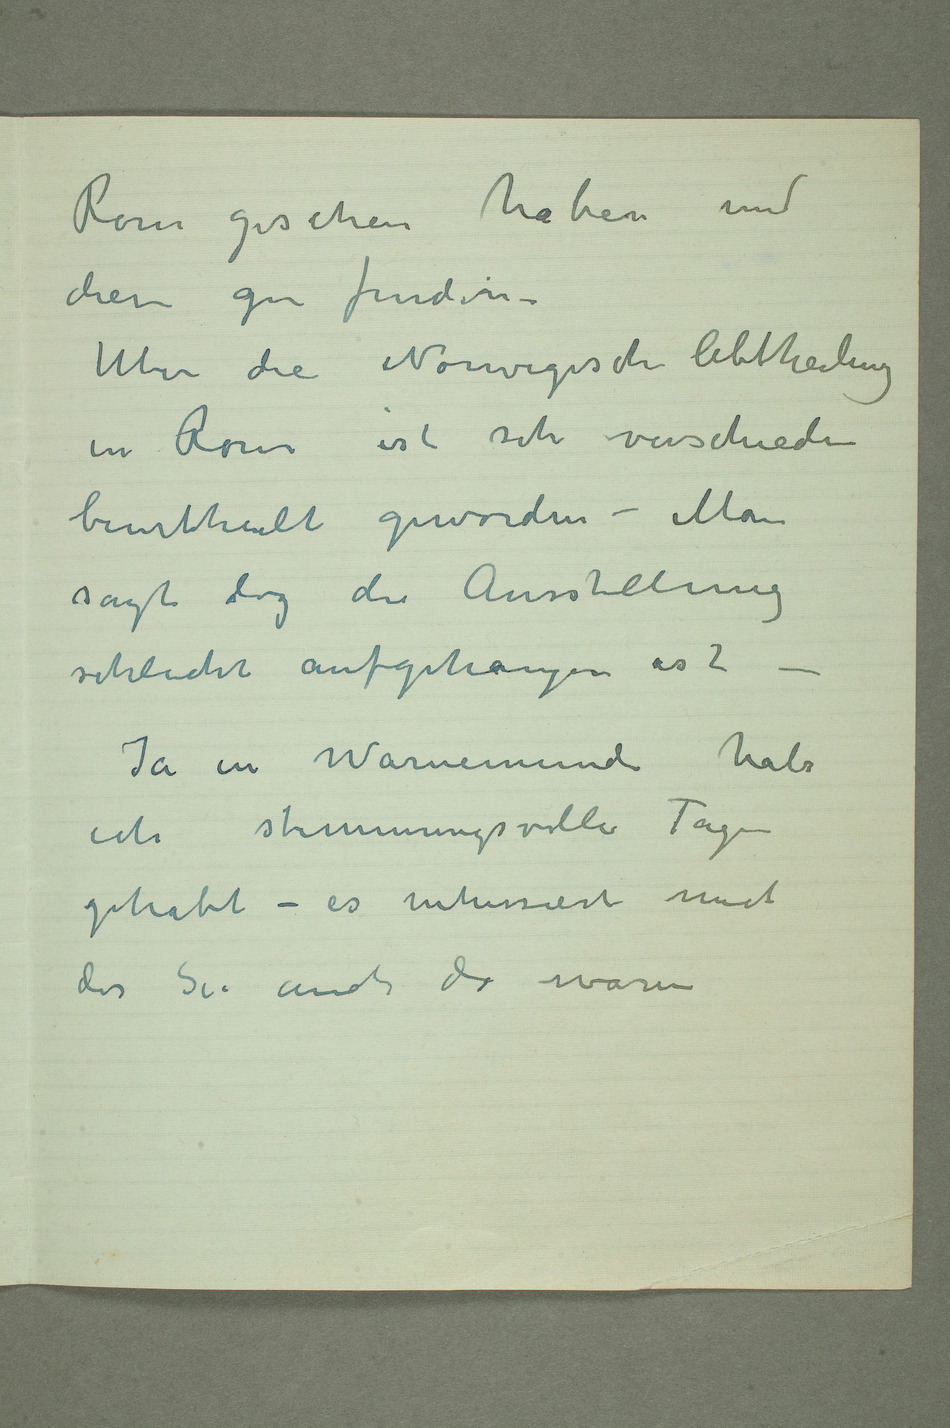 Rom gesehen haben und
diese gu finden –
Über die Norwegische Abtheilung
in Rom ist sehr verschieden
beurtheilt geworden – Man
sagt das die Ausstellung
schlecht aufgehängen ist –
Ja in Warnemünde habe
ich stimmungsvolle Tage
gehabt – es interessiert mich
das Sie auch da waren